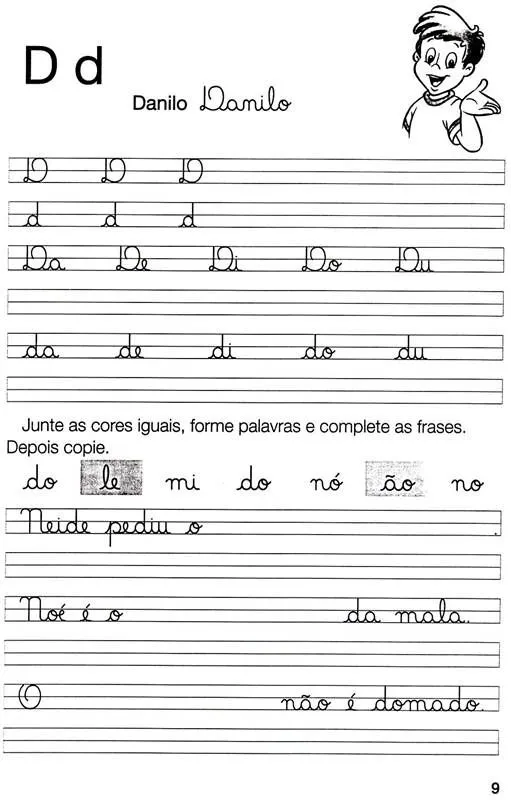 D d
Danilo Danilo
D D D
d d d
Da De Di Do Du
da de di do du
Junte as cores iguais, forme palavras e complete as frases.
Depois copie.
do le mi do nó ão no
Neide pediu o .
Noé é o da mala.
O não é domado.
9